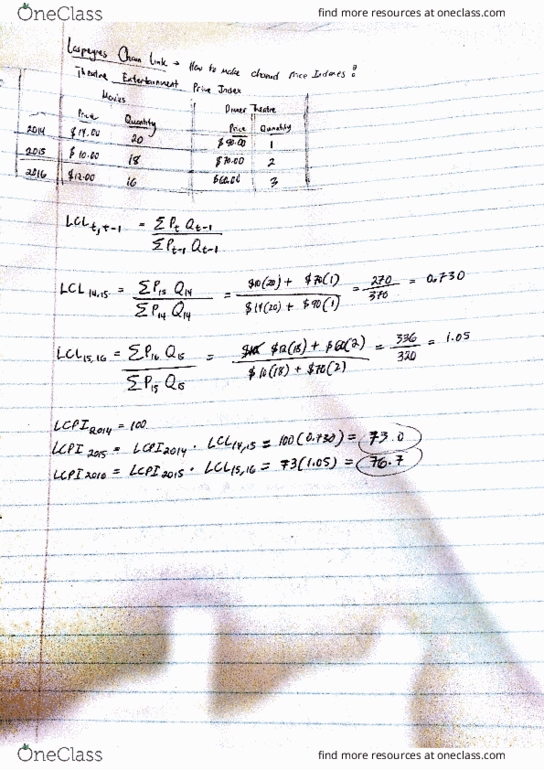 OneClass
find more resources at oneclass.com
Laspeyres Chain Link → How to make chained Price Indexes:
Theatre Entertainment Price Index
Movies Dinner Theatre
Price Quantity Price Quantity
2014 $14.00 20 $90.00 1
2015 $10.00 18 $70.00 2
2016 $12.00 16 $60.00 3
LCL t,t-1 = ΣPt Qt-1 / ΣPt-1 Qt-1
LCL 14,15 = ΣP15 Q14 / ΣP14 Q14 = $10(20) + $70(1) / $14(20) + $90(1) = 270 / 370 = 0.730
LCL 15,16 = ΣP16 Q15 / ΣP15 Q15 = $12(18) + $60(2) / $10(18) + $70(2) = 336 / 320 = 1.05
LCPI 2014 = 100
LCPI 2015 = LCPI 2014 · LCL 14,15 = 100(0.730) = 73.0
LCPI 2016 = LCPI 2015 · LCL 15,16 = 73(1.05) = 76.7
OneClass
find more resources at oneclass.com